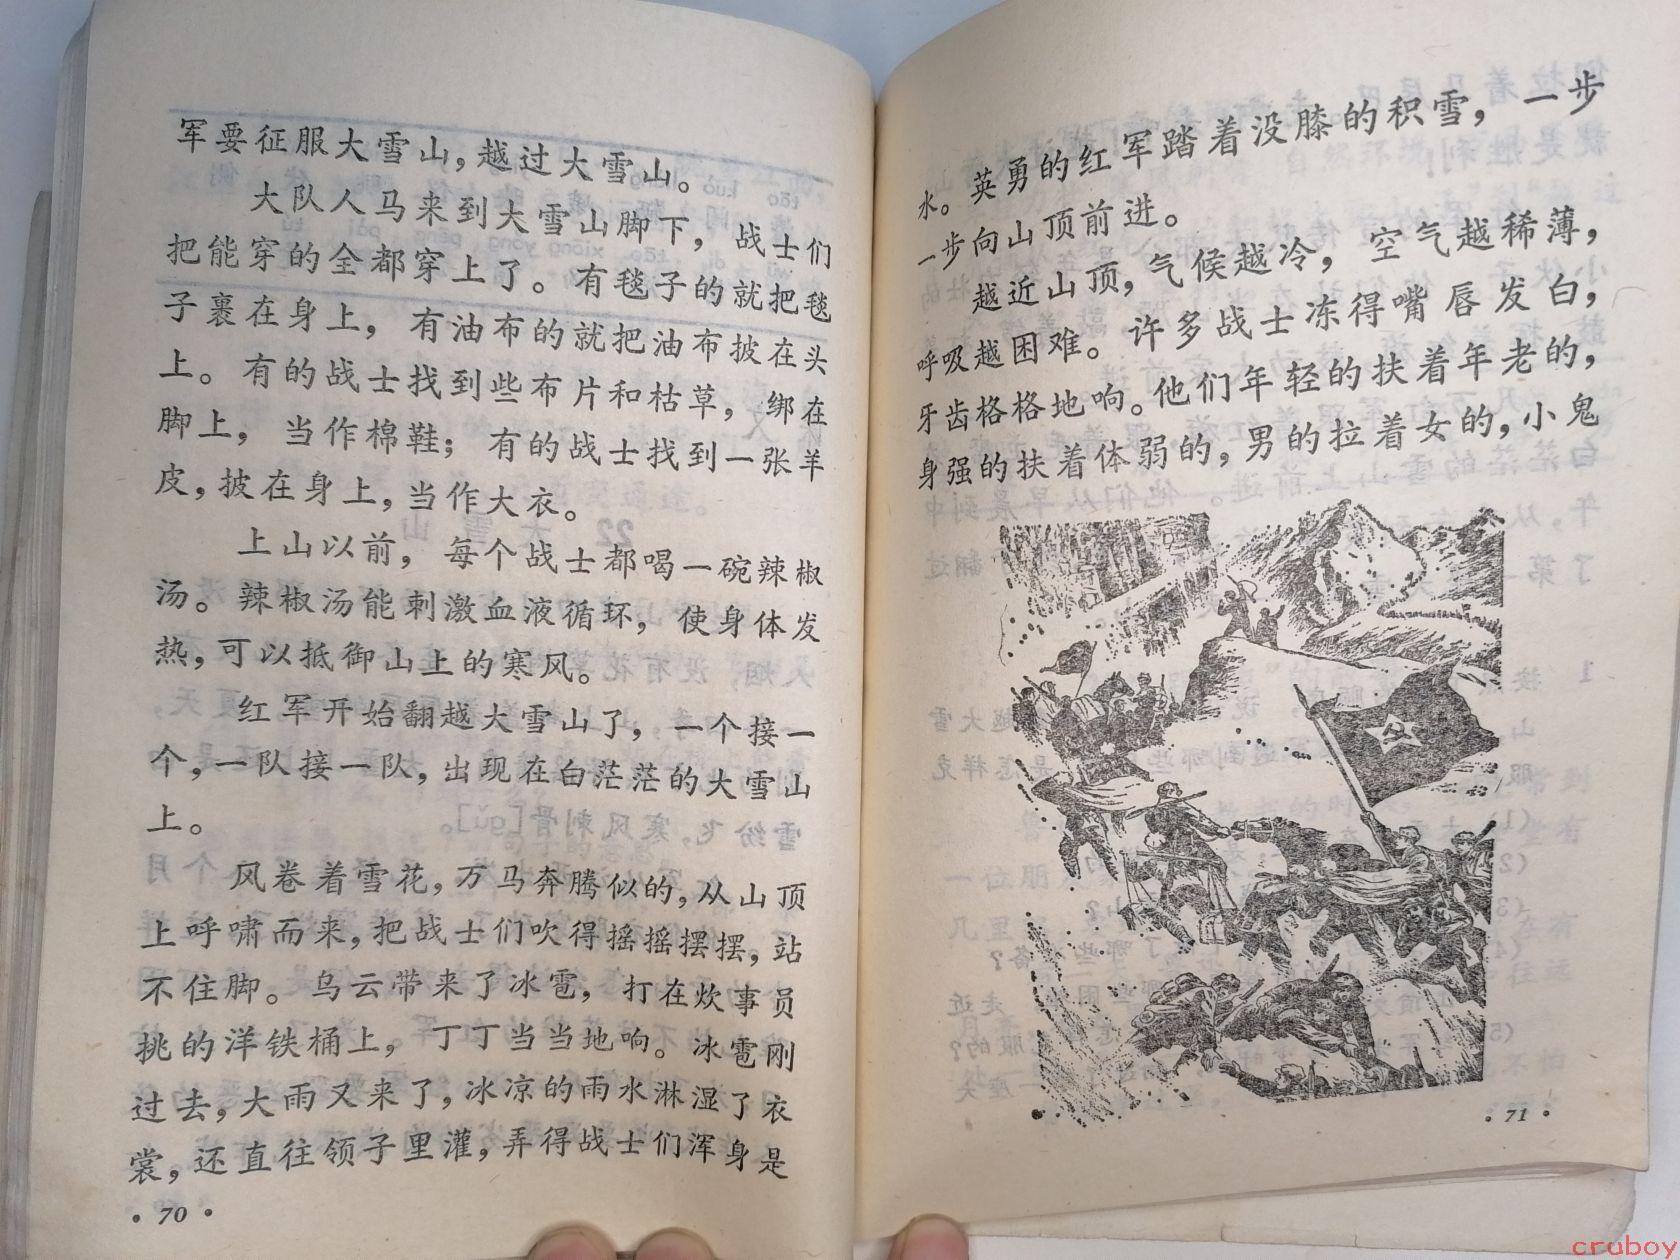 军要征服大雪山，越过大雪山。
大队人马来到大雪山脚下，战士们
把能穿的全都穿上了。有毯子的就把毯
子裹在身上，有油布的就把油布披在头
上。有的战士找到些布片和枯草，绑在
脚上，当作棉鞋；有的战士找到一张羊
皮，披在身上，当作大衣。
上山以前，每个战士都喝一碗辣椒
汤。辣椒汤能刺激血液循环，使身体发
热，可以抵御山上的寒风。
红军开始翻越大雪山了，一个接一
个，一队接一队，出现在白茫茫的大雪山
上。
风卷着雪花，万马奔腾似的，从山顶
上呼啸而来，把战士们吹得摇摇摆摆，站
不住脚。乌云带来了冰雹，打在炊事员
挑的洋铁桶上，丁丁当当地响。冰雹刚
过去，大雨又来了，冰凉的雨水淋湿了衣
裳，还直往领子里灌，弄得战士们浑身是
• 70 •
水。英勇的红军踏着没膝的积雪，一步
一步向山顶前进。
越近山顶，气候越冷，空气越稀薄，
呼吸越困难。许多战士冻得嘴唇发白，
牙齿格格地响。他们年轻的扶着年老的，
身强的扶着体弱的，男的拉着女的，小鬼
• 71 •
cruboy